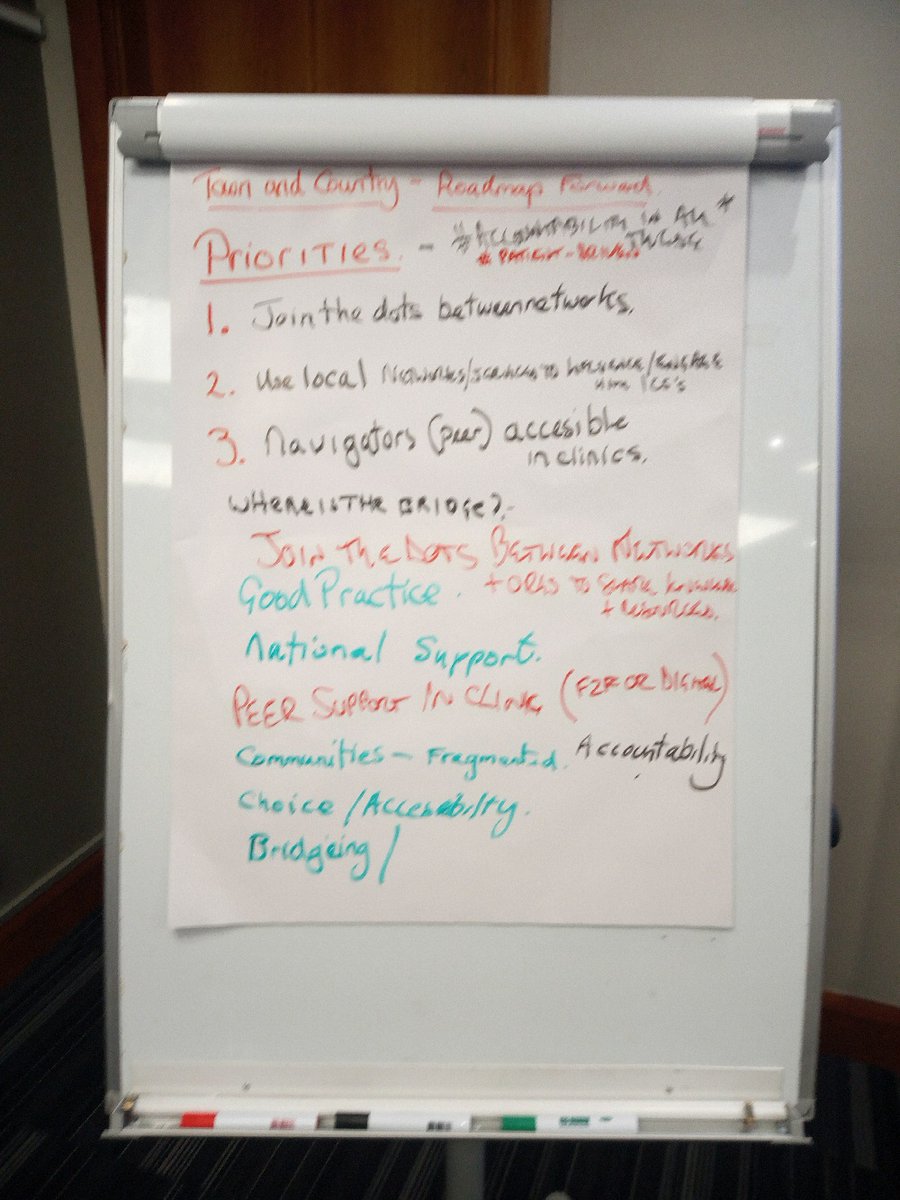 Town and Country - Roadmap Forward
Priorities. - *ACCOUNTABILITY IN ALL *
THESE
* PATIENT-
1. Join the dots between networks.
2. Use local Networks/ to /ENGAGE
ICS's
3. Navigators (peer) accesible
in clinics.
WHERE IS THE BRIDGE?-
JOIN THE DOTS BETWEEN NETWORKS
Good Practice. + ORGS TO knowledge
+ RESOURCES.
National Support.
PEER SUPPORT IN CLINIC (F2F OR DIGITAL)
Communities - Fragmented. Accountability
Choice /Accesability.
Bridgeing /